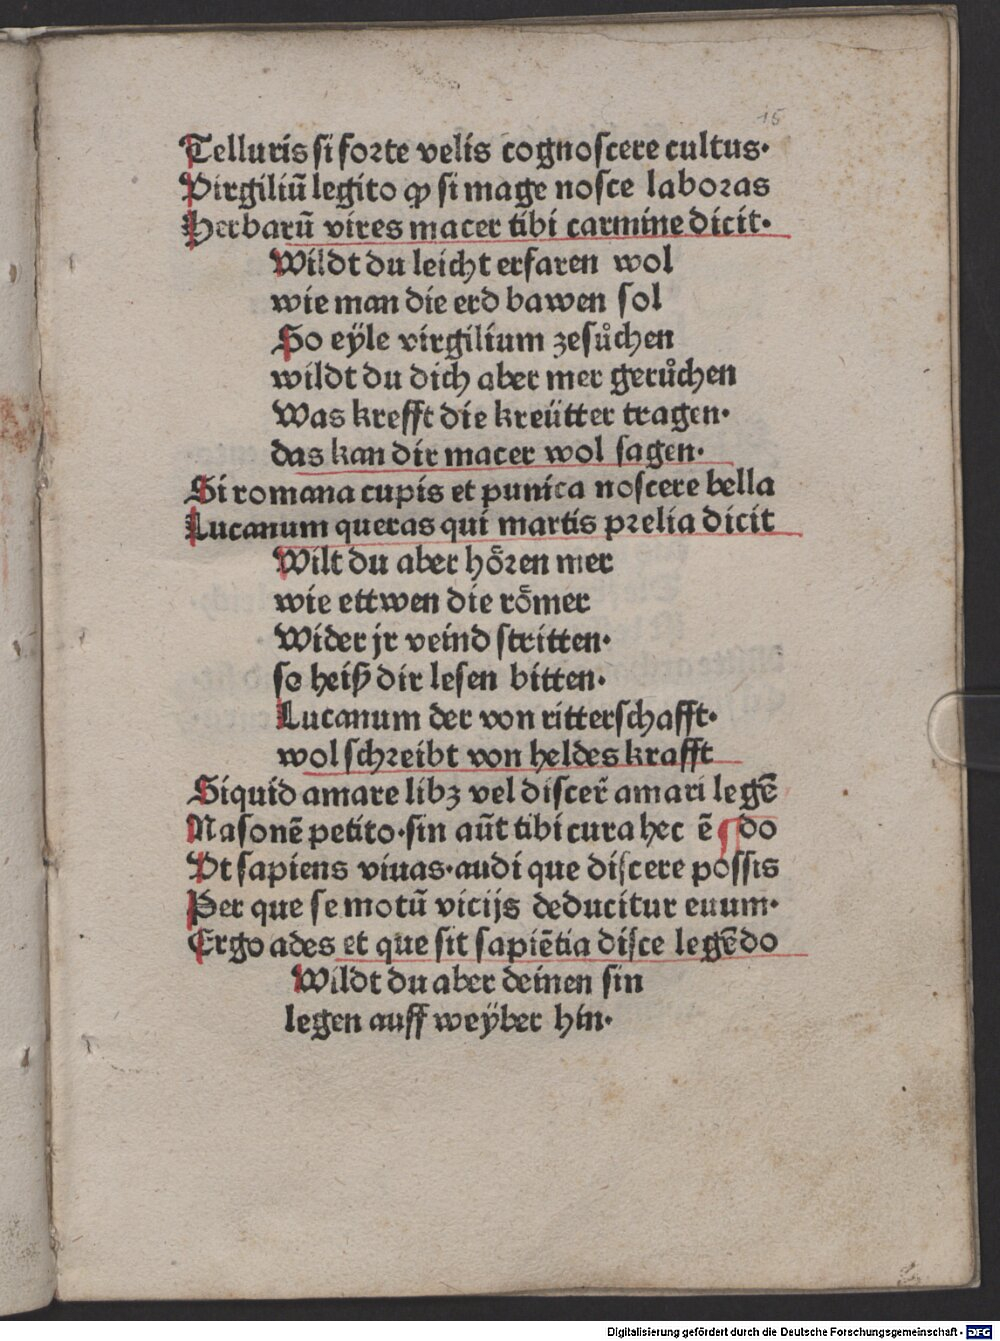 16
Telluris si forte velis cognoscere cultus·
Virgiliũ legito ꝙ si mage nosce laboras
Herbarũ vires macer tibi carmine dicit·
Wildt du leicht erfaren wol
wie man die erd bawen sol
So eÿle virgilium zesůchen
wildt du dich aber mer gerůchen
Was krefft die kreütter tragen·
das kan dir macer wol sagen·
Si romana cupis et punica noscere bella
Lucanum queras qui martis prelia dicit
Wilt du aber hören mer
wie ettwen die römer
Wider jr veind stritten·
so heiß dir lesen bitten·
Lucanum der von ritterschafft·
wol schreibt von heldes krafft
Siquid amare libꝫ vel discer̃ amari legẽ
Nasonẽ petito·sin aũt tibi cura hec ẽ ¶do
Vt sapiens viuas·audi que discere possis
Per que semotũ vicijs deducitur euum·
Ergo ades et que sit sapiẽtia disce legẽdo
Wildt du aber deinen sin
legen auff weÿber hin·
Digitalisierung gefördert durch die Deutsche Forschungsgemeinschaft - DFG